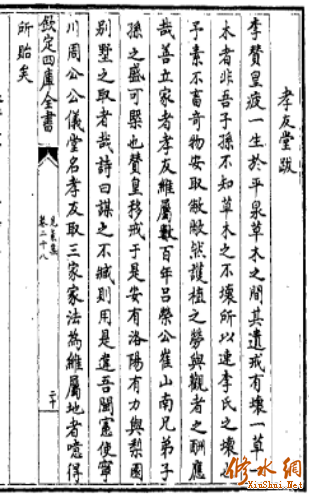 孝友堂跋
李贊皇疲一生於平泉草木之間其遺戒有壞一草一
木者非吾子孫不知草木之不壞所以速李氏之壞也
予素不畜奇物安取敝敝然護植之勞與觀者之酬應
哉善立家者孝友維屬數百年呂滎公崔山南兄弟子
孫之盛可槩也贊皇移戒于是安有洛陽有力與梨園
別墅之取者哉詩曰謀之不臧則用是違吾閩憲使寧
川周公公儀堂名孝友取三家家法為維屬地者噫得
欽定四庫全書
見素集
卷二十八
二十
所貽矣
修水網
XiuShui.Net